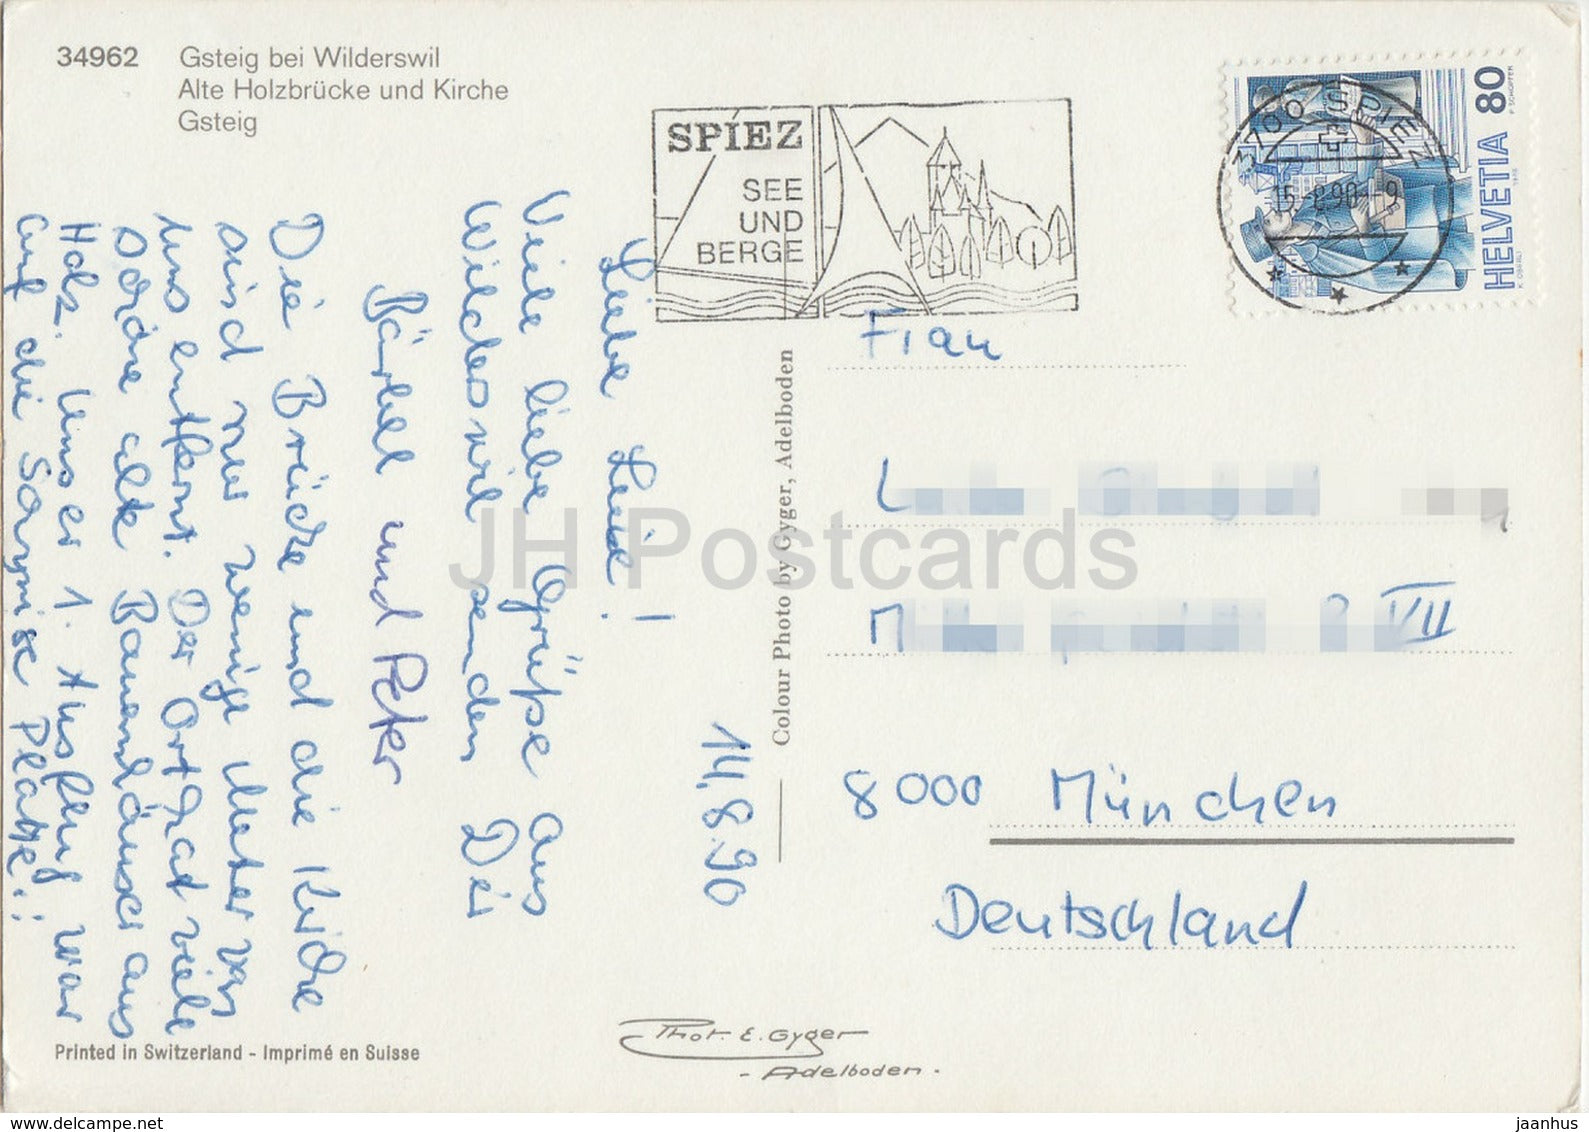 34962 Gsteig bei Wilderswil
Alte Holzbrücke und Kirche
Gsteig
SPIEZ
SEE
UND
BERGE
3700 SPIEZ
15.-8.90-19
HELVETIA 80
Liebe
Viele liebe Grüße aus
Wilderswil senden Dir
Bärbel und Peter
Die Brücke und die Kirche
sind nur wenige Meter von
uns entfernt. Der Ort hat viele
schöne alte Bauernhäuser aus
Holz. Unser 1. Ausflug war
auf die Schynige Platte!!
14.8.90
Colour Photo by Gyger, Adelboden
Frau
L
M VII
8000 München
Deutschland
Printed in Switzerland - Imprimé en Suisse
Phot. E. Gyger
- Adelboden -
JH Postcards
www.delcampe.net
jaanhus